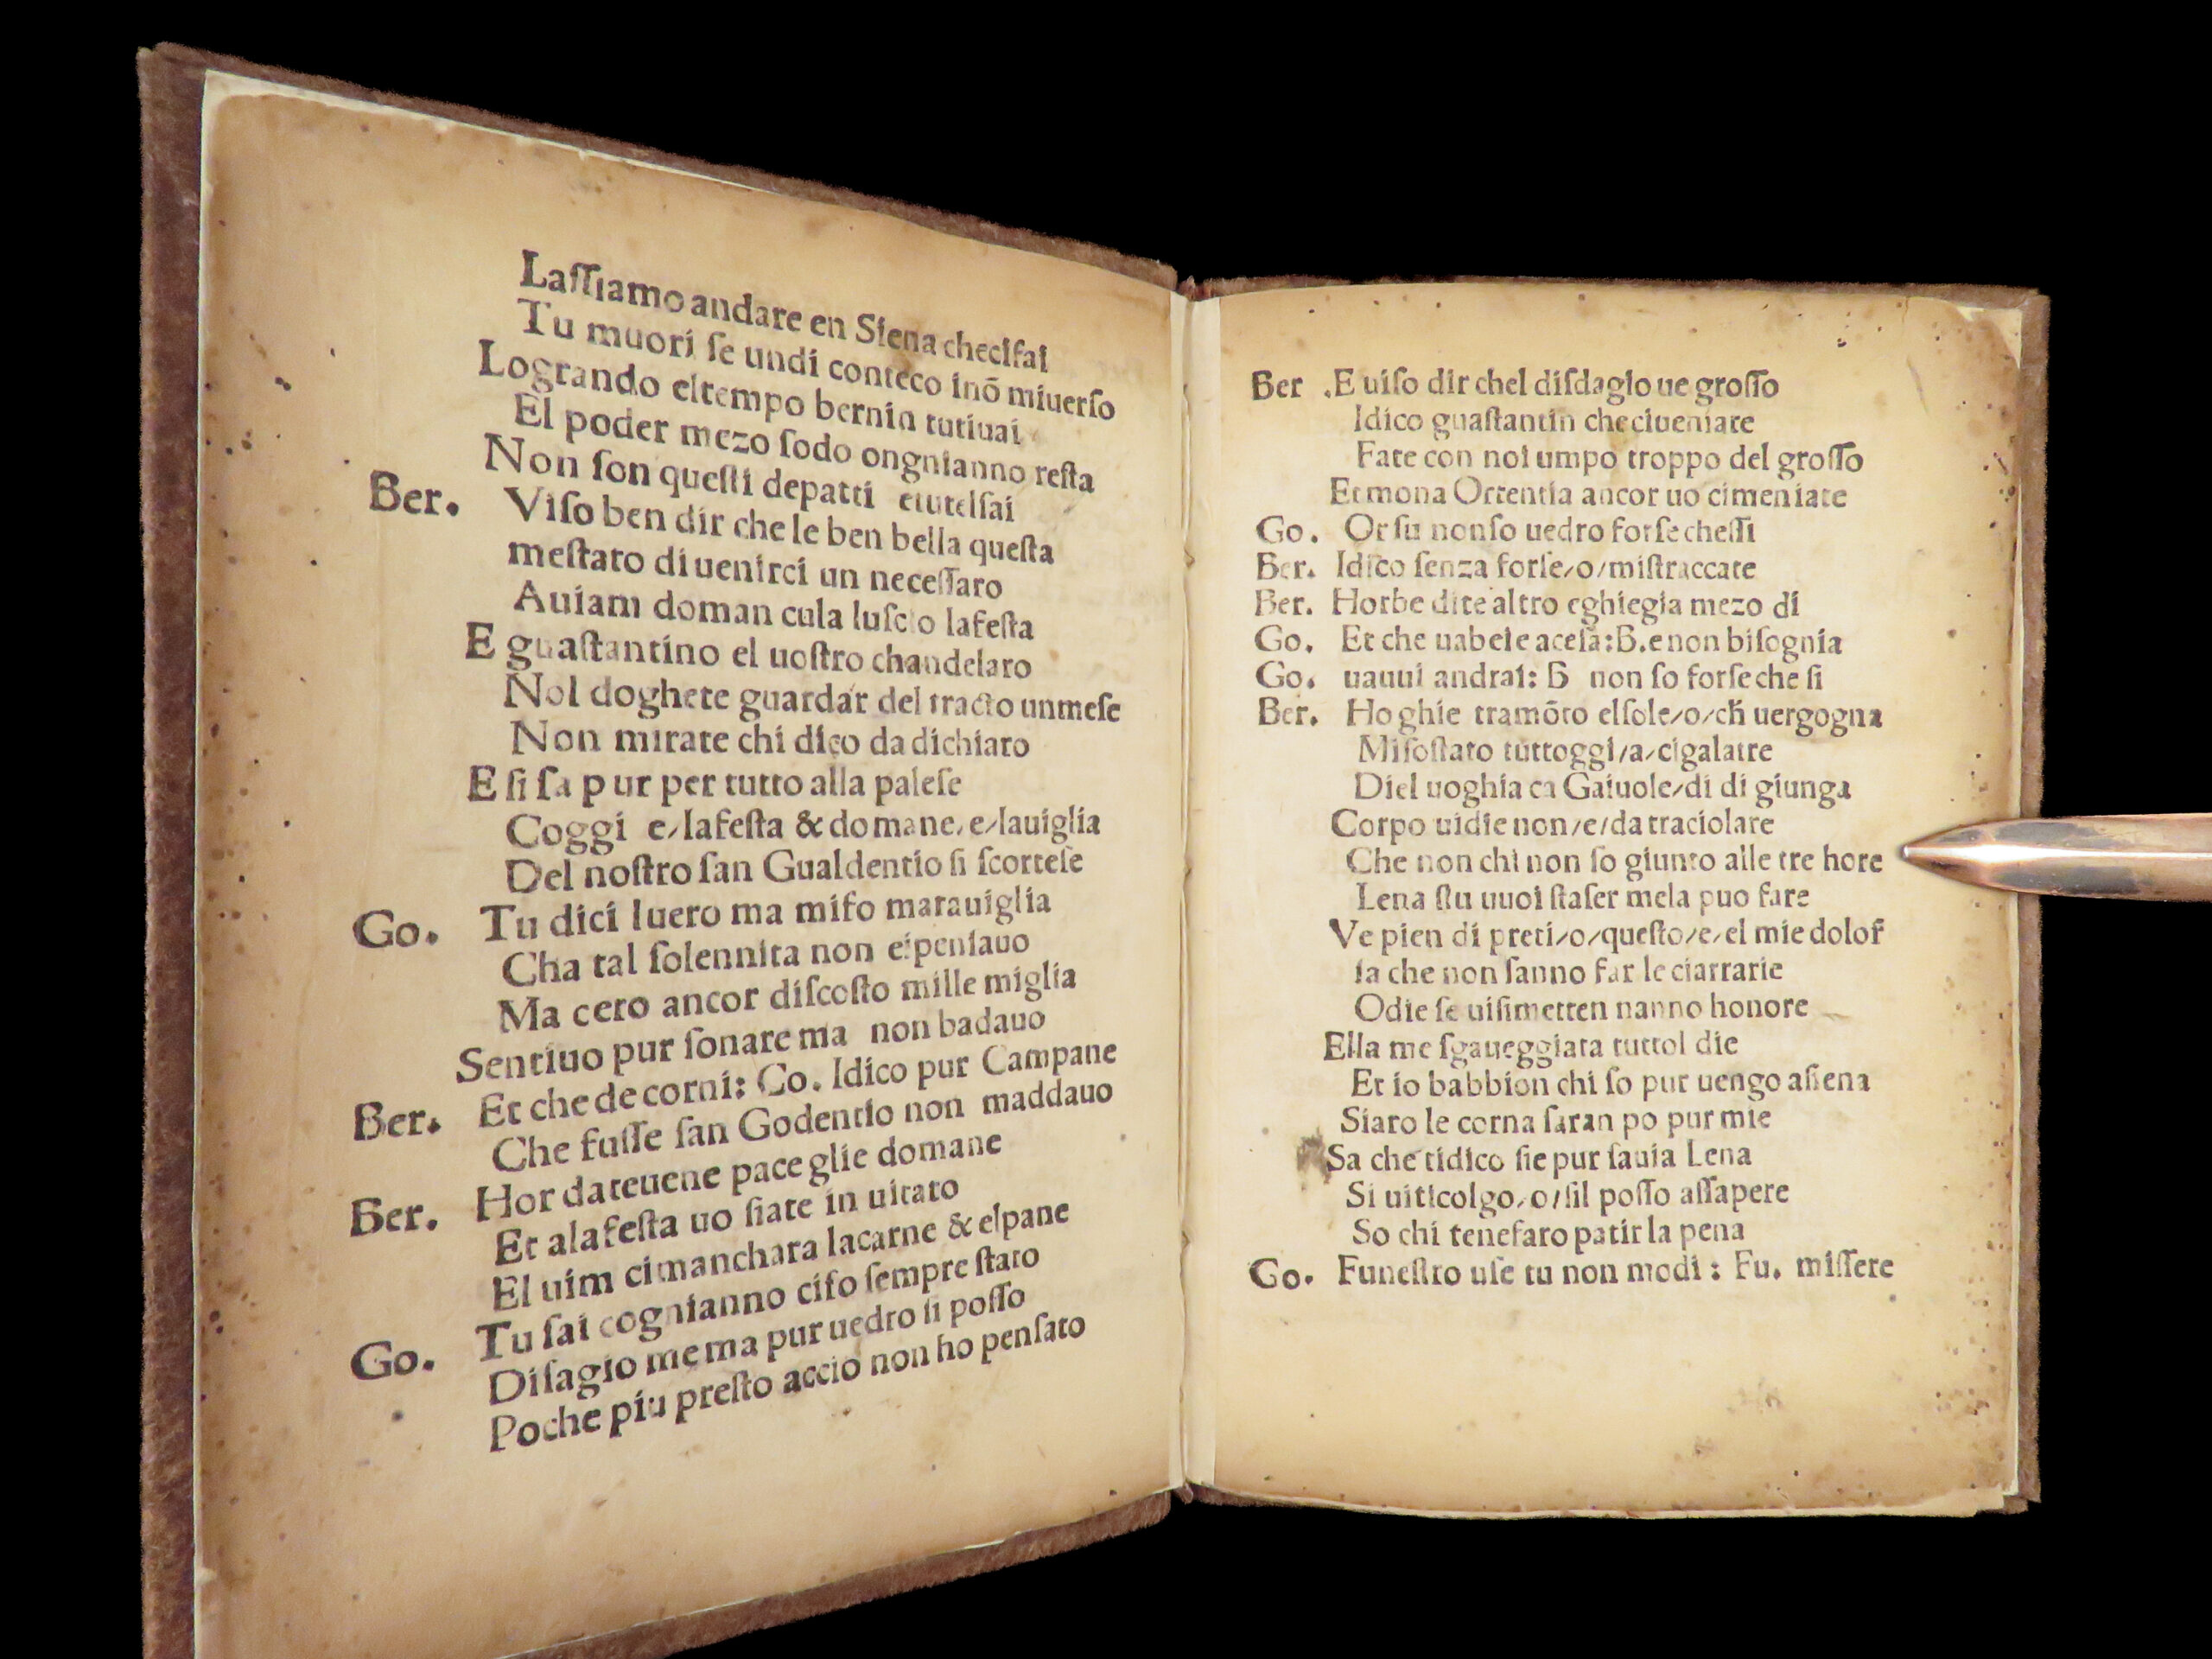 Laſſiamo andare en Siena checifai
Tu muori ſe undi conteco inõ miuerſo
Logrando eltempo bernin tutiuai
El poder mezo ſodo ongnianno reſta
Non ſon queſti depatti etutelſai
Ber. Viſo ben dir che le ben bella queſta
meſtato di uenirci un neceſſaro
Auiam doman cula luſcio lafeſta
E guaſtantino el uoſtro chandelaro
Nol doghete guardar del tracto unmeſe
Non mirate chi dico da dichiaro
E ſi ſa pur per tutto alla paleſe
Coggi e/lafeſta & domane/e/lauiglia
Del noſtro ſan Gualdentio ſi ſcorteſe
Go. Tu dici luero ma miſo marauiglia
Cha tal ſolennita non eſpenſauo
Ma cero ancor diſcoſto mille miglia
Sentiuo pur ſonare ma non badauo
Ber. Et che de corni: Go. Idico pur Campane
Che fuſſe ſan Godentio non maddauo
Ber. Hor dateuene pace glie domane
Et alafeſta uo ſiate in uitato
El uim cimanchara lacarne & elpane
Tu ſai cognianno ciſo ſempre ſtato
Go. Diſagio me ma pur uedro ſi poſſo
Poche piu preſto accio non ho penſato
Ber .E uiſo dir chel diſdagio ue groſſo
Idico guaſtantin checiueniate
Fate con noi umpo troppo del groſſo
Et mona Ortentia ancor uo cimeniate
Go. Or ſu nonſo uedro forſe cheſſi
Ber. Idico ſenza forſe/o/miſtraccate
Ber. Horbe dite altro eghiegia mezo di
Go. Et che uabele aceſa:B.e non biſognia
Go. uauui andrai: B non ſo forſe che ſi
Ber. Ho ghie tramõto elſole/o/ch̃ uergogna
Miſoſtato tuttoggi/a/cigalatre
Diel uoghia ca Gaiuole/di di giunga
Corpo uidie non/e/da traciolare
Che non chi non ſo giunto alle tre hore
Lena ſtu uuoi ſtaſer mela puo fare
Ve pien di preti/o/queſto/e/el mie dolor̃
ſa che non ſanno far le ciarrarie
Odie ſe uiſimetten nanno honore
Ella me ſgaueggiata tuttol die
Et io babbion chi ſo pur uengo aſiena
Siaro le corna ſaran po pur mie
Sa che tidico ſie pur ſauia Lena
Si uiticolgo/o/ſil poſſo aſſapere
So chi tenefaro patir la pena
Go. Funeſtro uſe tu non modi : Fu. miſſere